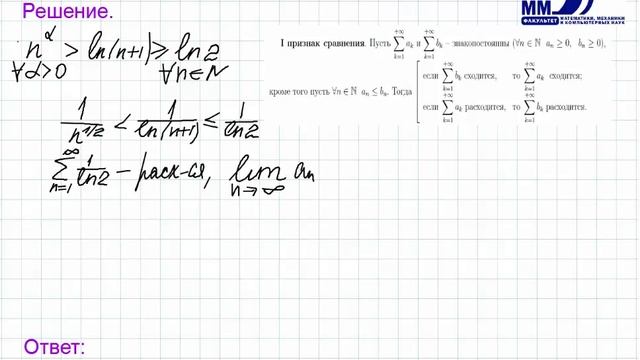 Решение.
ММ
ФАКУЛЬТЕТ МАТЕМАТИКИ, МЕХАНИКИ И КОМПЬЮТЕРНЫХ НАУК
n^α > ln(n+1) ≥ ln 2
∀α>0 ∀n∈N
1/n^{1/2} < 1/ln(n+1) ≤ 1/ln2
∑_{n=1}^{∞} 1/ln2 – расх-ся, lim_{n→∞} a_n
I признак сравнения. Пусть ∑_{k=1}^{+∞} a_k и ∑_{k=1}^{+∞} b_k – знакопостоянны (∀n ∈ ℕ a_n ≥ 0, b_n ≥ 0),
кроме того пусть ∀n ∈ ℕ a_n ≤ b_n. Тогда
если ∑_{k=1}^{+∞} b_k сходится, то ∑_{k=1}^{+∞} a_k сходится;
если ∑_{k=1}^{+∞} a_k расходится, то ∑_{k=1}^{+∞} b_k расходится.
Ответ: